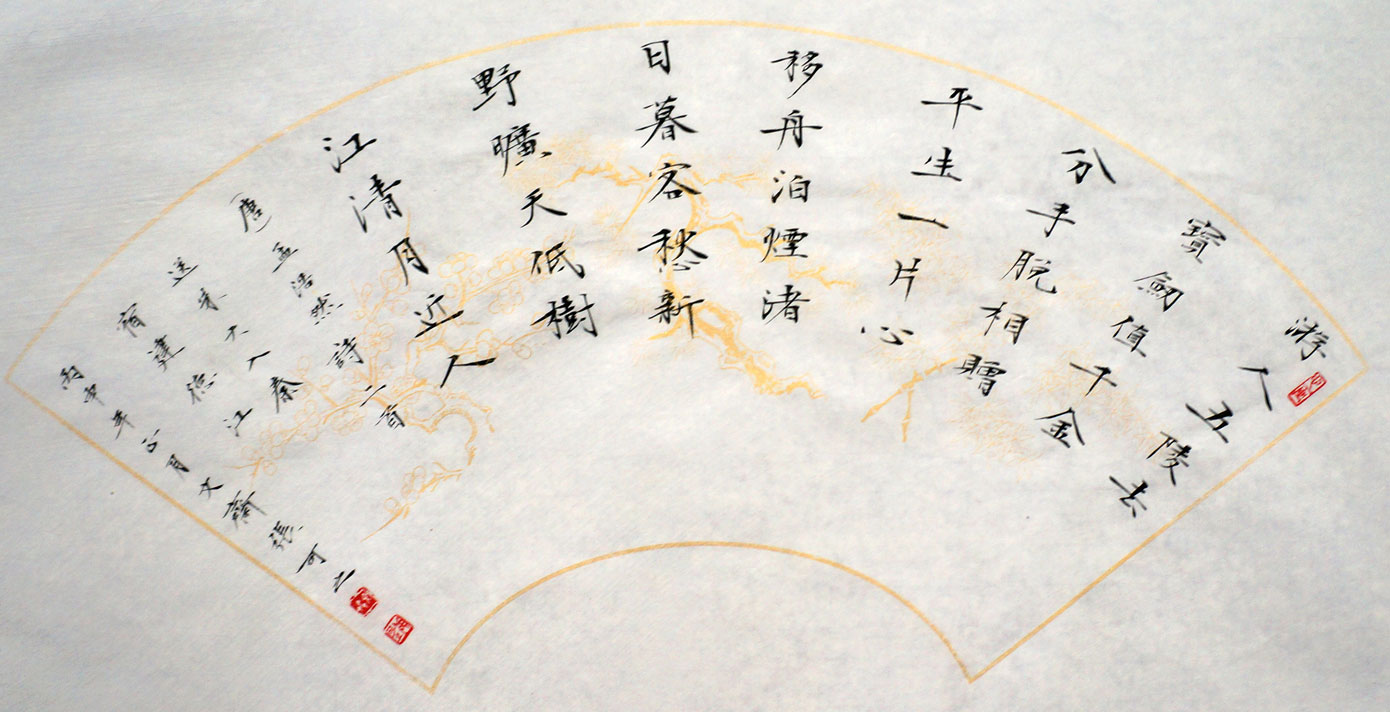 游人五陵去
寶劍值千金
分手脫相贈
平生一片心
移舟泊煙渚
日暮客愁新
野曠天低樹
江清月近人
唐孟浩然詩二首
送朱大入秦
宿建德江
丙申年正月文龢張可之